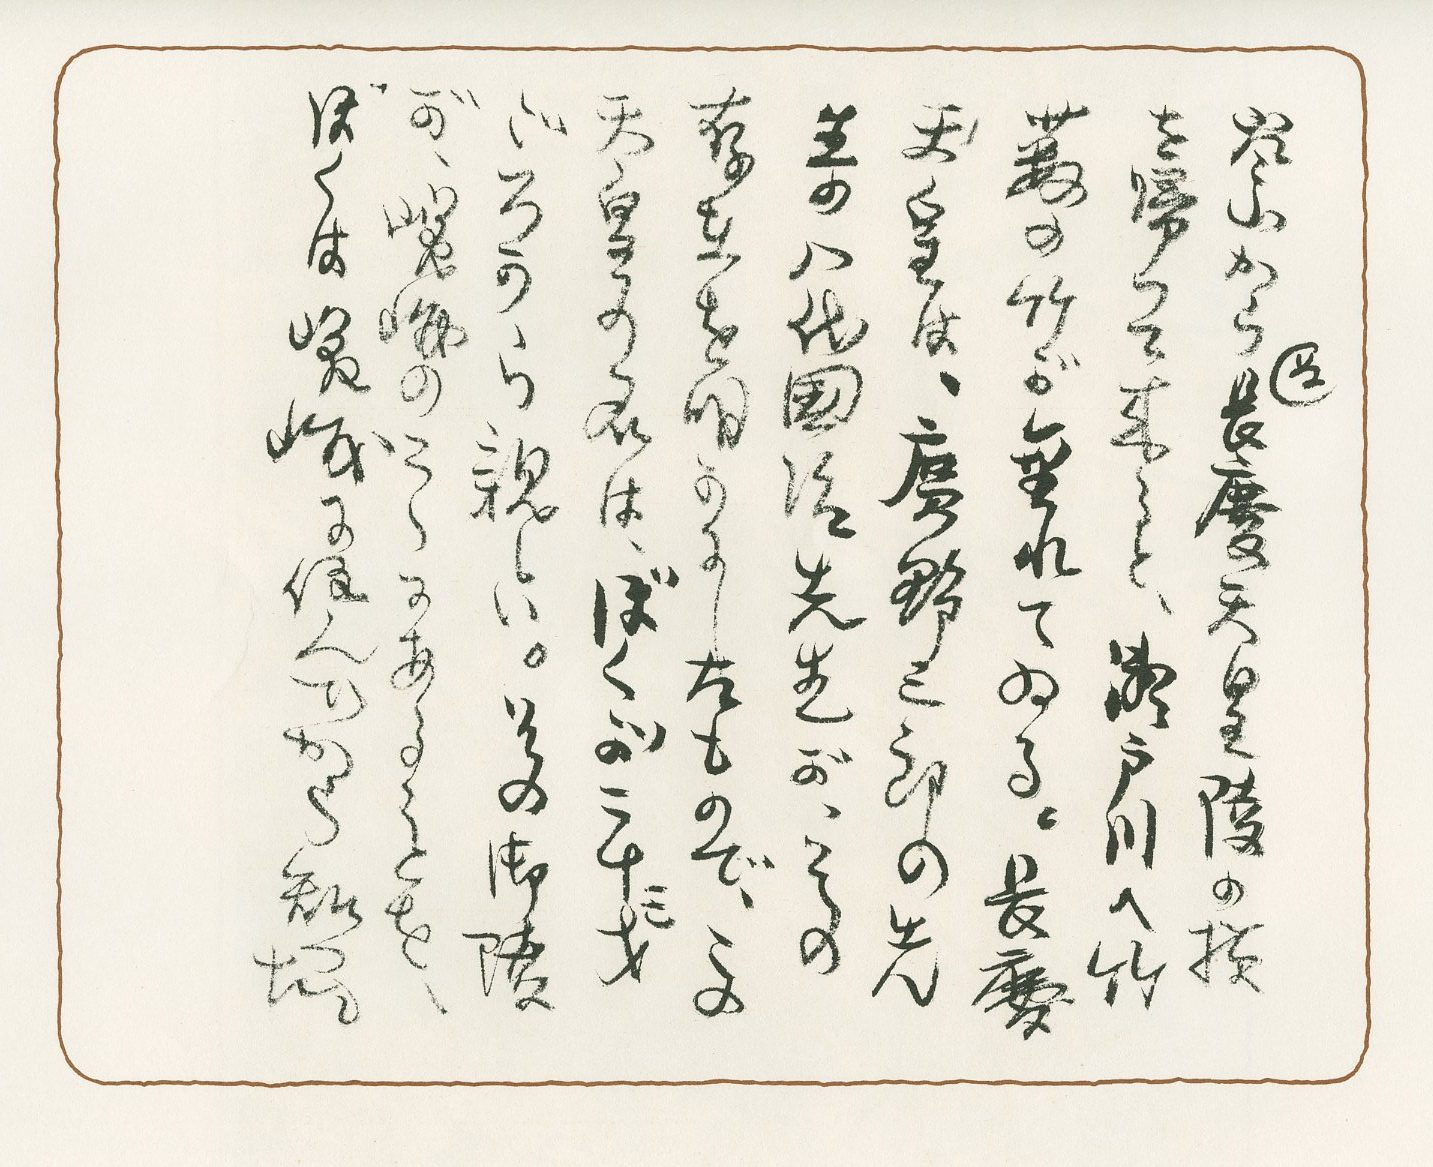 嵐山から長慶天皇陵の横
を帰つて来ると、瀬戸川へ竹
薮の竹が垂れてゐる。長慶
天皇は、廣野三郎の先
生の八代国治先生が、その
存在を明かにしたもので、この
天皇の名は、ぼくが二十三才
ごろから親しい。その御陵
が、嵯峨のこゝにあることを、
ぼくは嵯峨に住んでから知